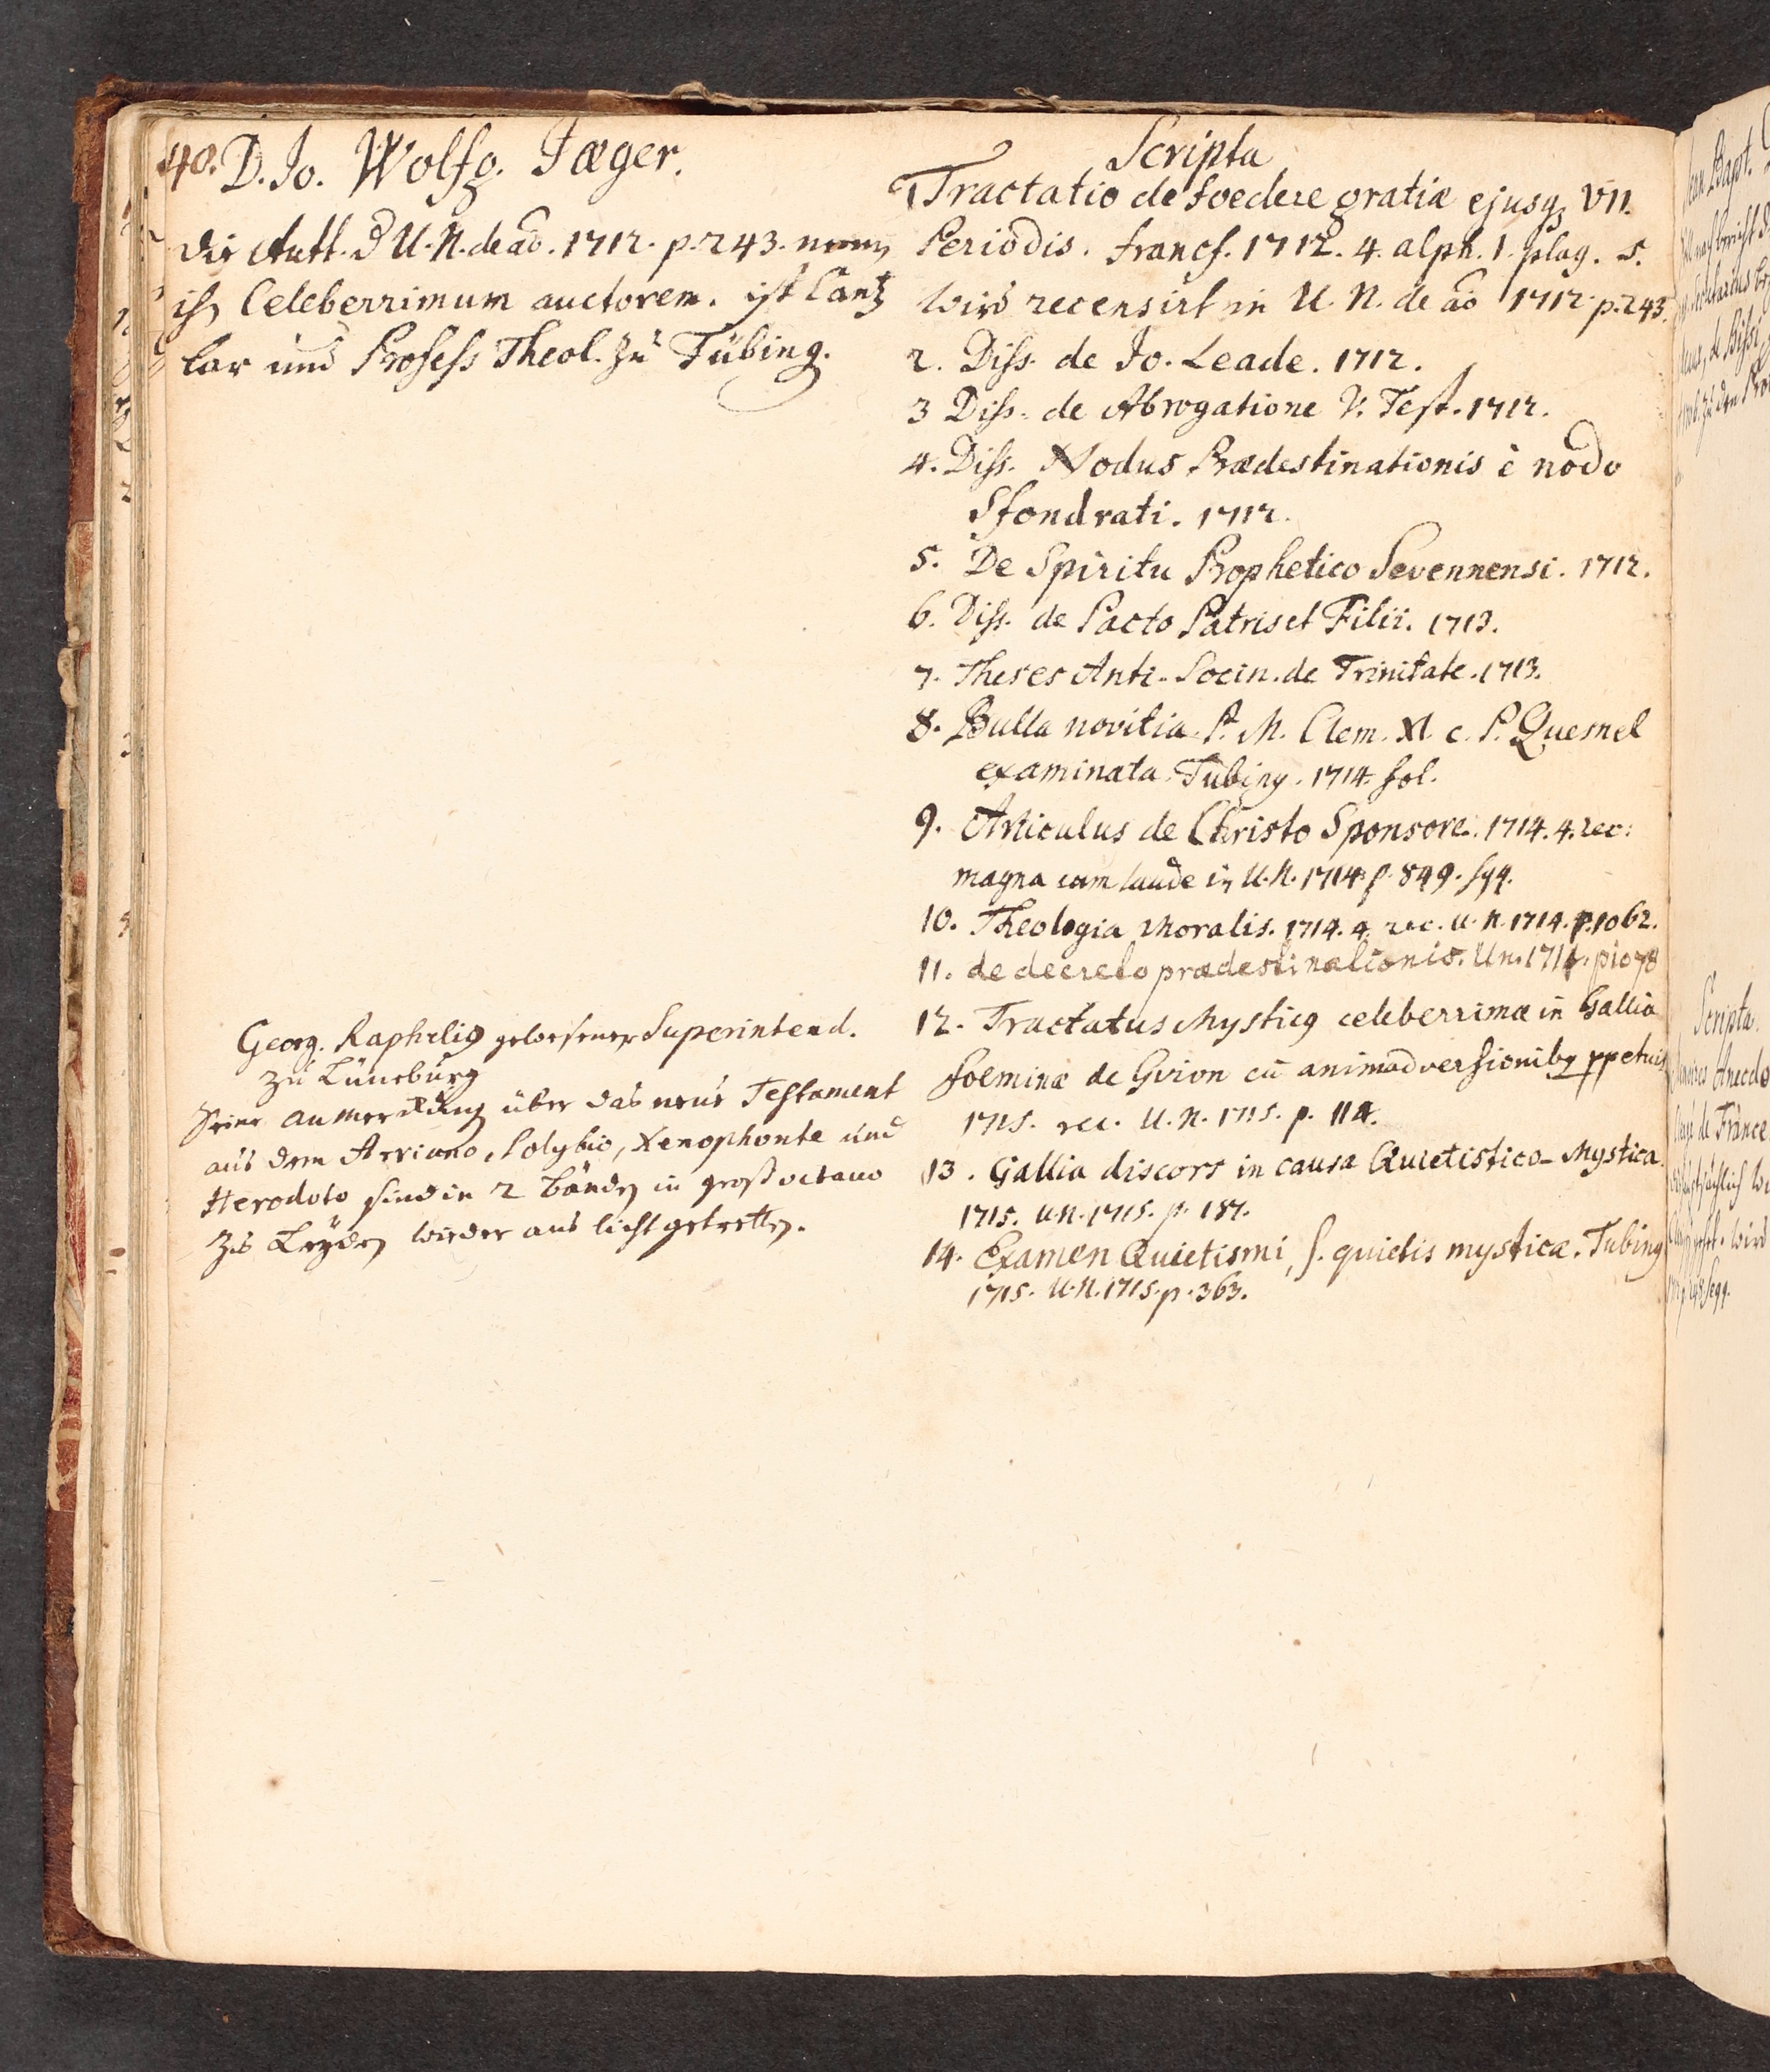 40. D. Jo. Wolfg. Jæger.
die Autt. d U. N. de ao. 1712. p. 243. nenn
ih Celeberrimum auctorem. ist Cantz
lar und Profess Theol. zu Tübing.
Georg. Raphelig gewesener Superintend.
zu Lüneburg
Seine anmerckung über das neue Testament
aus dem Arriano, Polybio, Xenophonte und
Herodoto sind in 2 bänden in groß octavo
zu Leyden wieder ans licht getretten.
Scripta
1 Tractatio de foedere gratiæ ejusq VII.
Periodis. francf. 1712. 4. alph. 1. plag. 5.
wird recensirt in U. N. de ao 1712. p. 243.
2. Diss. de Jo. Leade. 1712.
3 Diss. de Abrogatione V. Test. 1712.
4. Diss. Nodus Prædestinationis è nodo
Sfondrati. 1712.
5. De Spiritu Prophetico Sevennensi. 1712.
6. Diss. de Pacto Patris et Filii. 1713.
7. Theses Anti-Socin. de Trinitate. 1713.
8. Bulla novitia P. M. Clem. XI. c. P. Quesnel
examinata. Tubing. 1714. fol.
9. Articulus de Christo Sponsore. 1714. 4. rec:
magna cum laude in U. N. 1714. p. 849. sqq.
10. Theologia Moralis. 1714. 4. rec. U. N. 1714. p. 1062.
11. de decreto prædestinationis. Un. 1714. p 1078
12. Tractatus Mysticq celeberrimæ in Gallia
foeminæ de Gvion cū animadversionibq ppetuis
1715. rec. U. N. 1715. p. 114.
13. Gallia discors in causa Quietistico-Mystica.
1715. U. N. 1715. p. 187.
14. Examen Quietismi, s. quietis mysticæ. Tubing
1715. U. N. 1715. p. 363.
Scripta.
Anecdo
de France